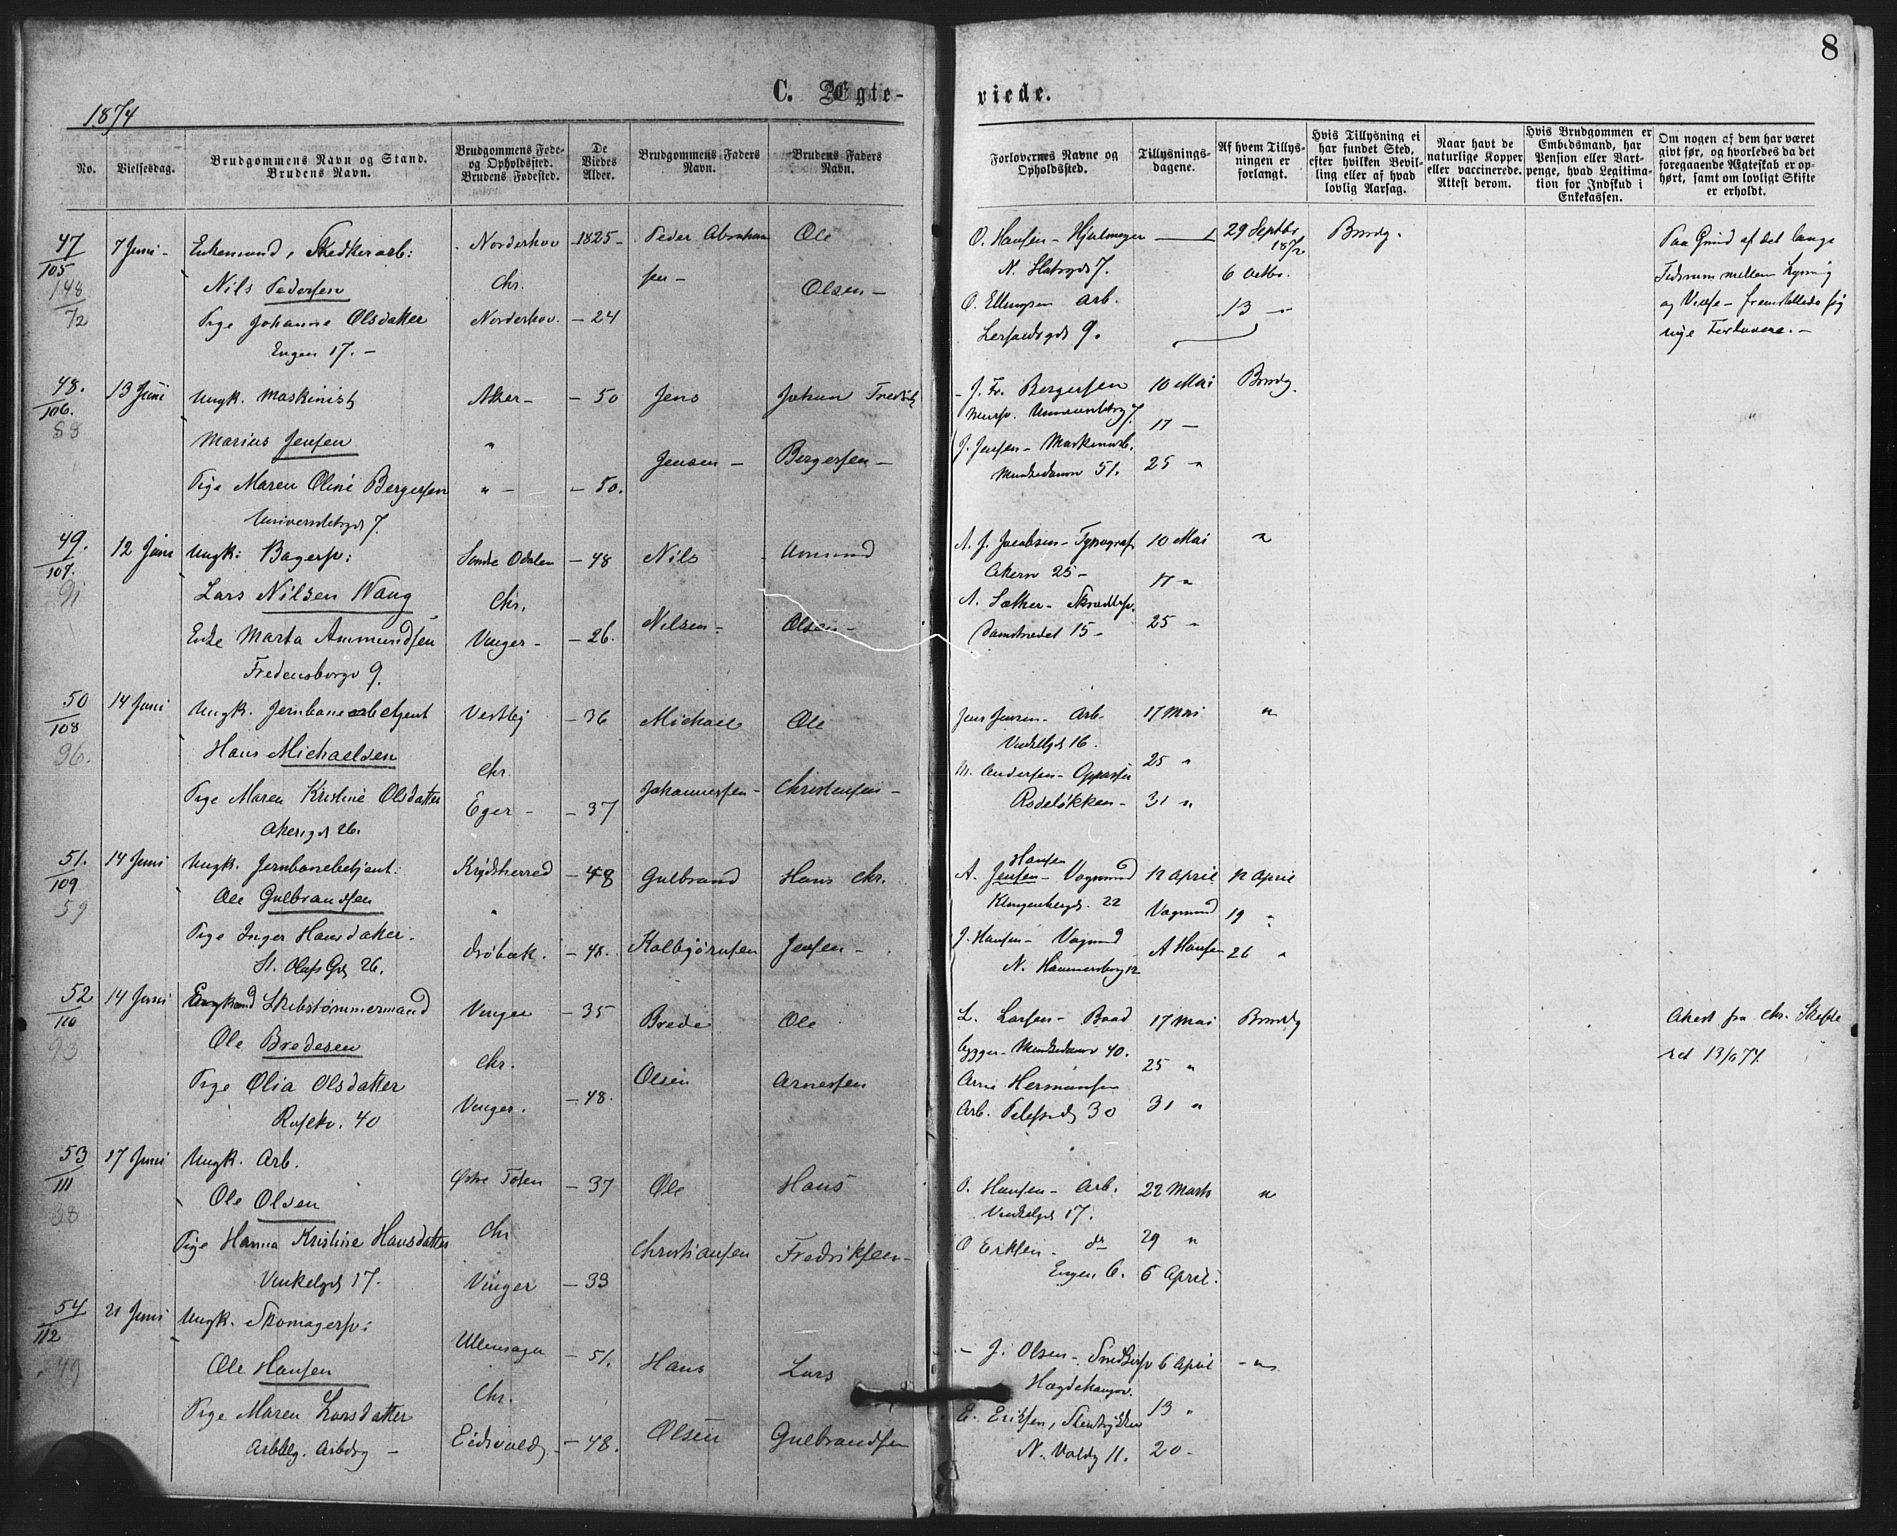 8
C. Ægte-
viede.
1874
No.
Vielsesdag.
Brudgommens Navn og Stand.
Brudens Navn.
Brudgommens Føde-
og Opholdssted.
Brudens Fødested.
De
Viedes
Alder.
Brudgommens Faders
Navn.
Brudens Faders
Navn.
Forlovernes Navne og
Opholdssted.
Tillysnings-
dagene.
Af hvem Tillys-
ningen er
forlangt.
Hvis Tillysning ei
har fundet Sted,
efter hvilken Bevil-
ling eller af hvad
lovlig Aarsag.
Naar havt de
naturlige Kopper
eller vaccinerede.
Attest derom.
Hvis Brudgommen er
Embedsmand, har
Pension eller Vart-
penge, hvad Legitima-
tion for Indskud i
Enkekassen.
Om nogen af dem har været
givt før, og hvorledes da det
foregaaende Ægteskab er op-
hørt, samt om lovligt Skifte
er erholdt.
47 7 Juni - Enkemand, arb: Norderhov 1825 - Peder Abraham Ole O. Hansen - Hjulmager 29 Septbr Brudg.
105 1872 Paa Grund af det lange
148 Nils Pedersen Chr. sen - Olsen - 6 Octbr. Tidsrum mellem Lysning
72 Pige Johanne Olsdatter Norderhov. - 24 O. Ellingsen Arb. 13 - og Vielse - fremstilledes sig
Engen 17. - 9. nye Forlovere. -
48. 13 Juni Ungk. Maskinist Aker - - 50 Jens Johan Fredrik J. Fr. Bergersen 10 Mai Brudg.
106. Universitetsg 7. 17 -
88 Marius Jensen " Jensen - Bergersen - J. Jensen - Maskinarb.
Pige Maren Oline Bergersen " - - 50. Munkedamsv 51. 25 "
Universitetsgd 7
49. 12 Juni Ungk: Bagersv: Søndre Odalen - 48 Nils Amund A. J. Jacobsen - Typograf 10 Mai "
107. Akersv 25 - 17 "
91 Lars Nilsen Wang Chr. Nilsen - Olsen - A. Sæther - Skræddersv.
Enke Marta Ammundsen Vinger - - 26. Damstrædet 15 - 25 "
Fredensborgv 9.
50 14 Juni Ungk. Jernbanearbetjent Vestby - 36 Michael Ole Jens Jensen - Arb. 17 Mai "
108 Vinkelgd 16.
96. Hans Michaelsen Chr. M. Andersen - Oppasser 25 "
Pige Maren Kristine Olsdatter Eger - - 37 Johannessen - Christensen - Rodeløkken - 31 "
Akersgd 26.
51. 14 Juni Ungk. Jernbanebetjent: Krydsherred - 48 Gulbrand Hans Chr. A. Jensen Hansen - Vognmand 12 April 12 April
109 Ole Gulbrandsen " Klingenbergd. 22 Vognmand 19 "
59 Pige Inger Hansdatter - Drøbak. - 48. Kolbjørnsen Jensen - J. Hansen - Vognmd A Hansen 26 "
St. Olafs Gd 26. N. Hammersborg 12
52 14 Juni Skibstømmermand Vinger - 35 Brede Ole L. Larsen - Baad 17 Mai Brudg Attest fra Chr. Skifte
110 bygger - Munkedamsv 40. ret
93 Ole Bredesen Chr. Olsen Arnesen Arne Hermansen 25 "
Pige Olia Olsdatter Vinger. - 48. Arb. 30 31 "
40
53 17 Juni Ungk. Arb. Østre Toten - 37 Ole Hans O. Hansen - Arb. 22 Marts "
111 Ole Olsen Chr Vinkelgd 17.
38 Pige Hanna Kristine Hansdatter Christiansen Fredriksen - O Eriksen - do 29 "
Vinkelgd 17. Vinger - 33 Engen 6. 5 April.
54 21 Juni Ungk. Skomagersv: Ullensager - 51. Hans Lars J. Olsen - Snedkersv 6 April "
112 Ole Hansen Chr. Hægdehaugsv.
49 Pige Maren Larsdatter Eidsvold - 48. Olsen Gulbrandsen E. Eriksen, 13 "
N. Voldg 11. 20 -